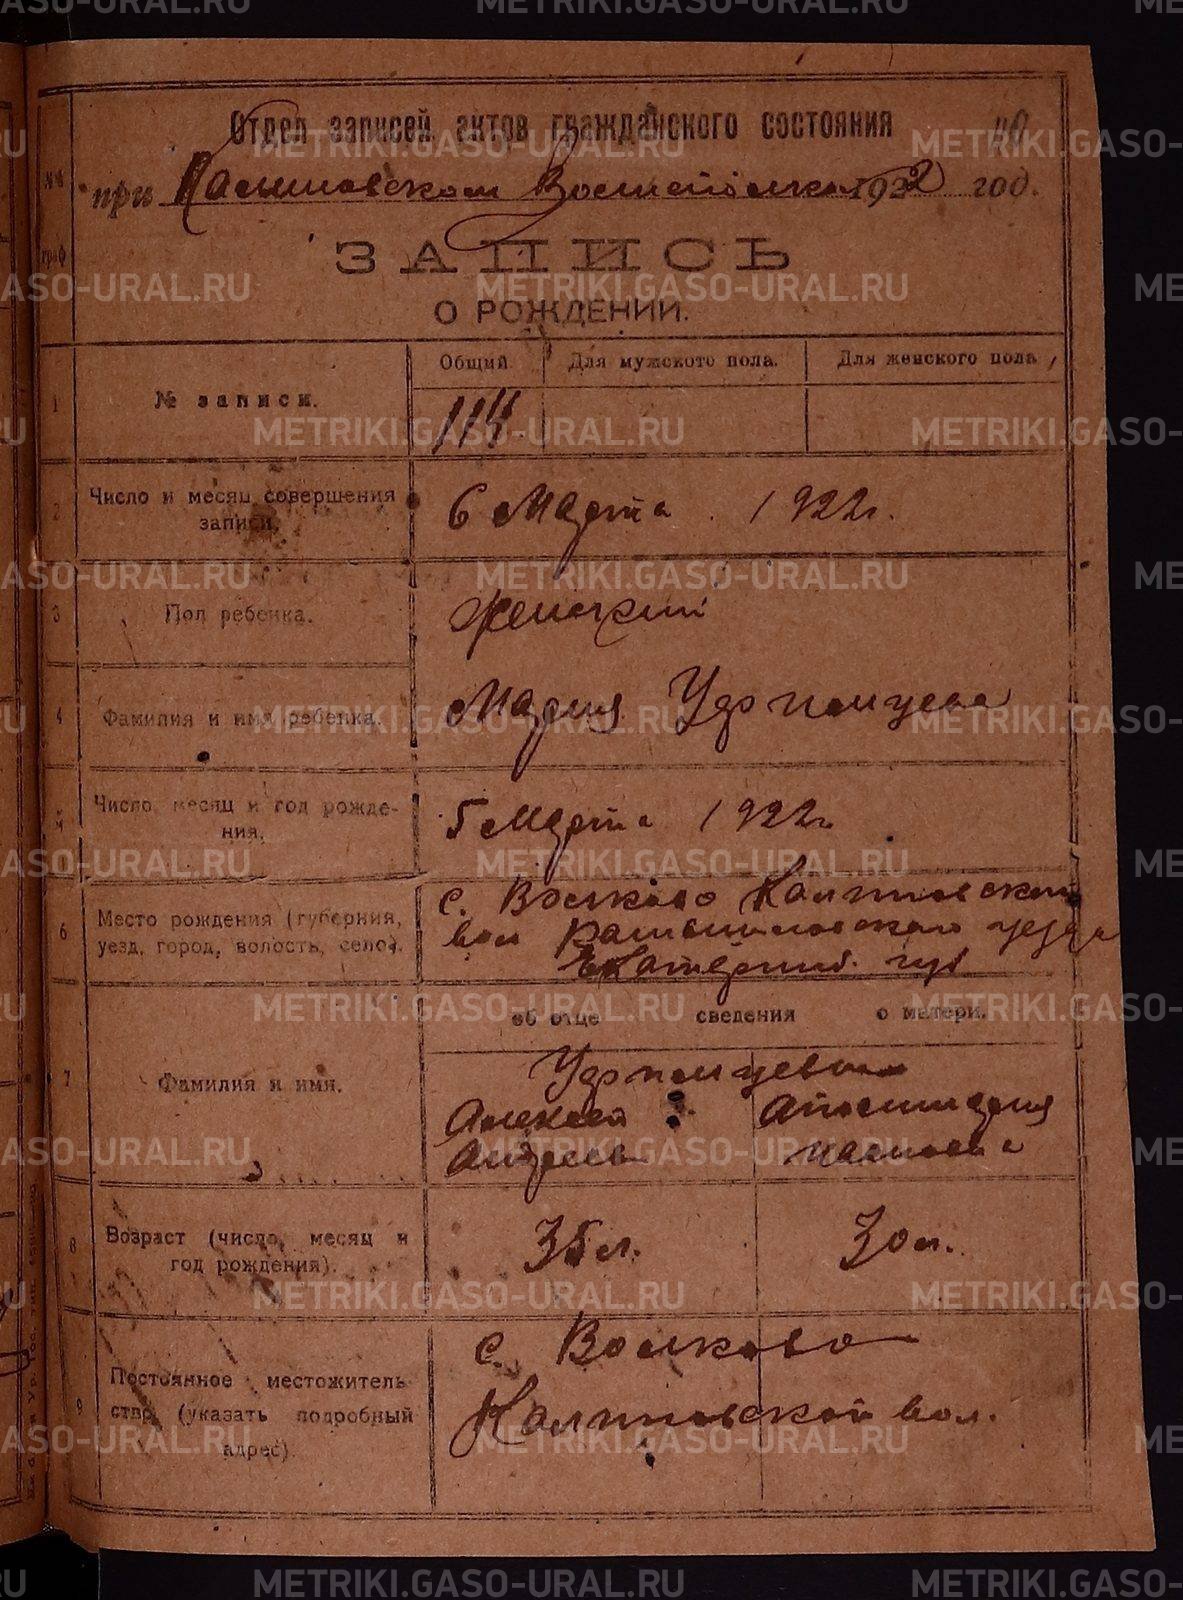 Отдел записей актов гражданского состояния
40
№№
граф
при Волисполкоме 1922 год.
ЗАПИСЬ
О РОЖДЕНИИ.
1
№ записи.
Общий.
Для мужского пола.
Для женского пола
114
2
Число и месяц совершения
записи.
6 Марта 1922г.
3
Пол ребенка.
Женский
4
Фамилия и имя ребенка.
Мария Удринцева
Число, месяц и год рожде-
ния.
5 Марта 1922г
6
Место рождения (губерния,
уезд, город, волость, село).
с. Волково
вол Камышловского уезда
Екатеринб. губ
об отце сведения о матери.
7
Фамилия и имя.
Алексей
Андреев
Апполинария
8
Возраст (число, месяц и
год рождения).
35 л.
30 л.
9
Постоянное местожитель
ство (указать подробный
адрес).
с. Волково
вол.
METRIKI.GASO-URAL.RU